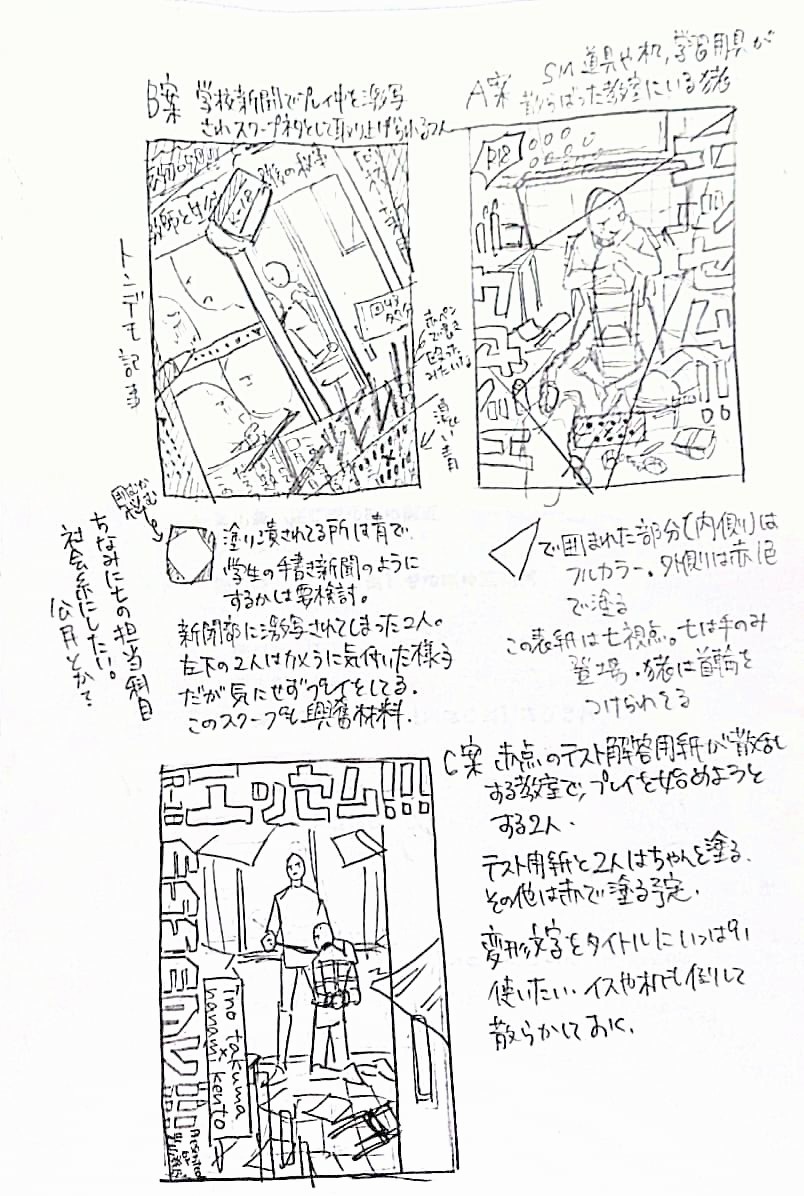 B案 学校新聞でプレイ中を激写
されスクープネタとして取り上げられる2人
A案 SM道具や机,学習用具が
散らばった教室にいる猪
R18
トンデモ記事
赤ペン
濃い青
塗り潰されてる所は青で、
学生の手書き新聞のように
するかは要検討。
新聞部に激写されてしまった2人。
左下の2人はカメラに気付いた様子
だが気にせずプレイをしてる。
このスクープも興奮材料.
ちなみに七の担当科目
社会系にしたい。
公民とかで
で囲まれた部分(内側)は
フルカラー。外側は赤1色
で塗る
この表紙は七視点。七は手のみ
登場.猪は首輪を
つけられてる
C案 赤点のテスト解答用紙が散乱
する教室で,プレイを始めようと
する2人.
テスト用紙と2人はちゃんと塗る.
その他は赤で塗る予定.
変形文字をタイトルにいっぱい
使いたい.イスや机も倒して
散らかしておく.
R-18
エッセム!!!
ino takuma
×
nanami kento